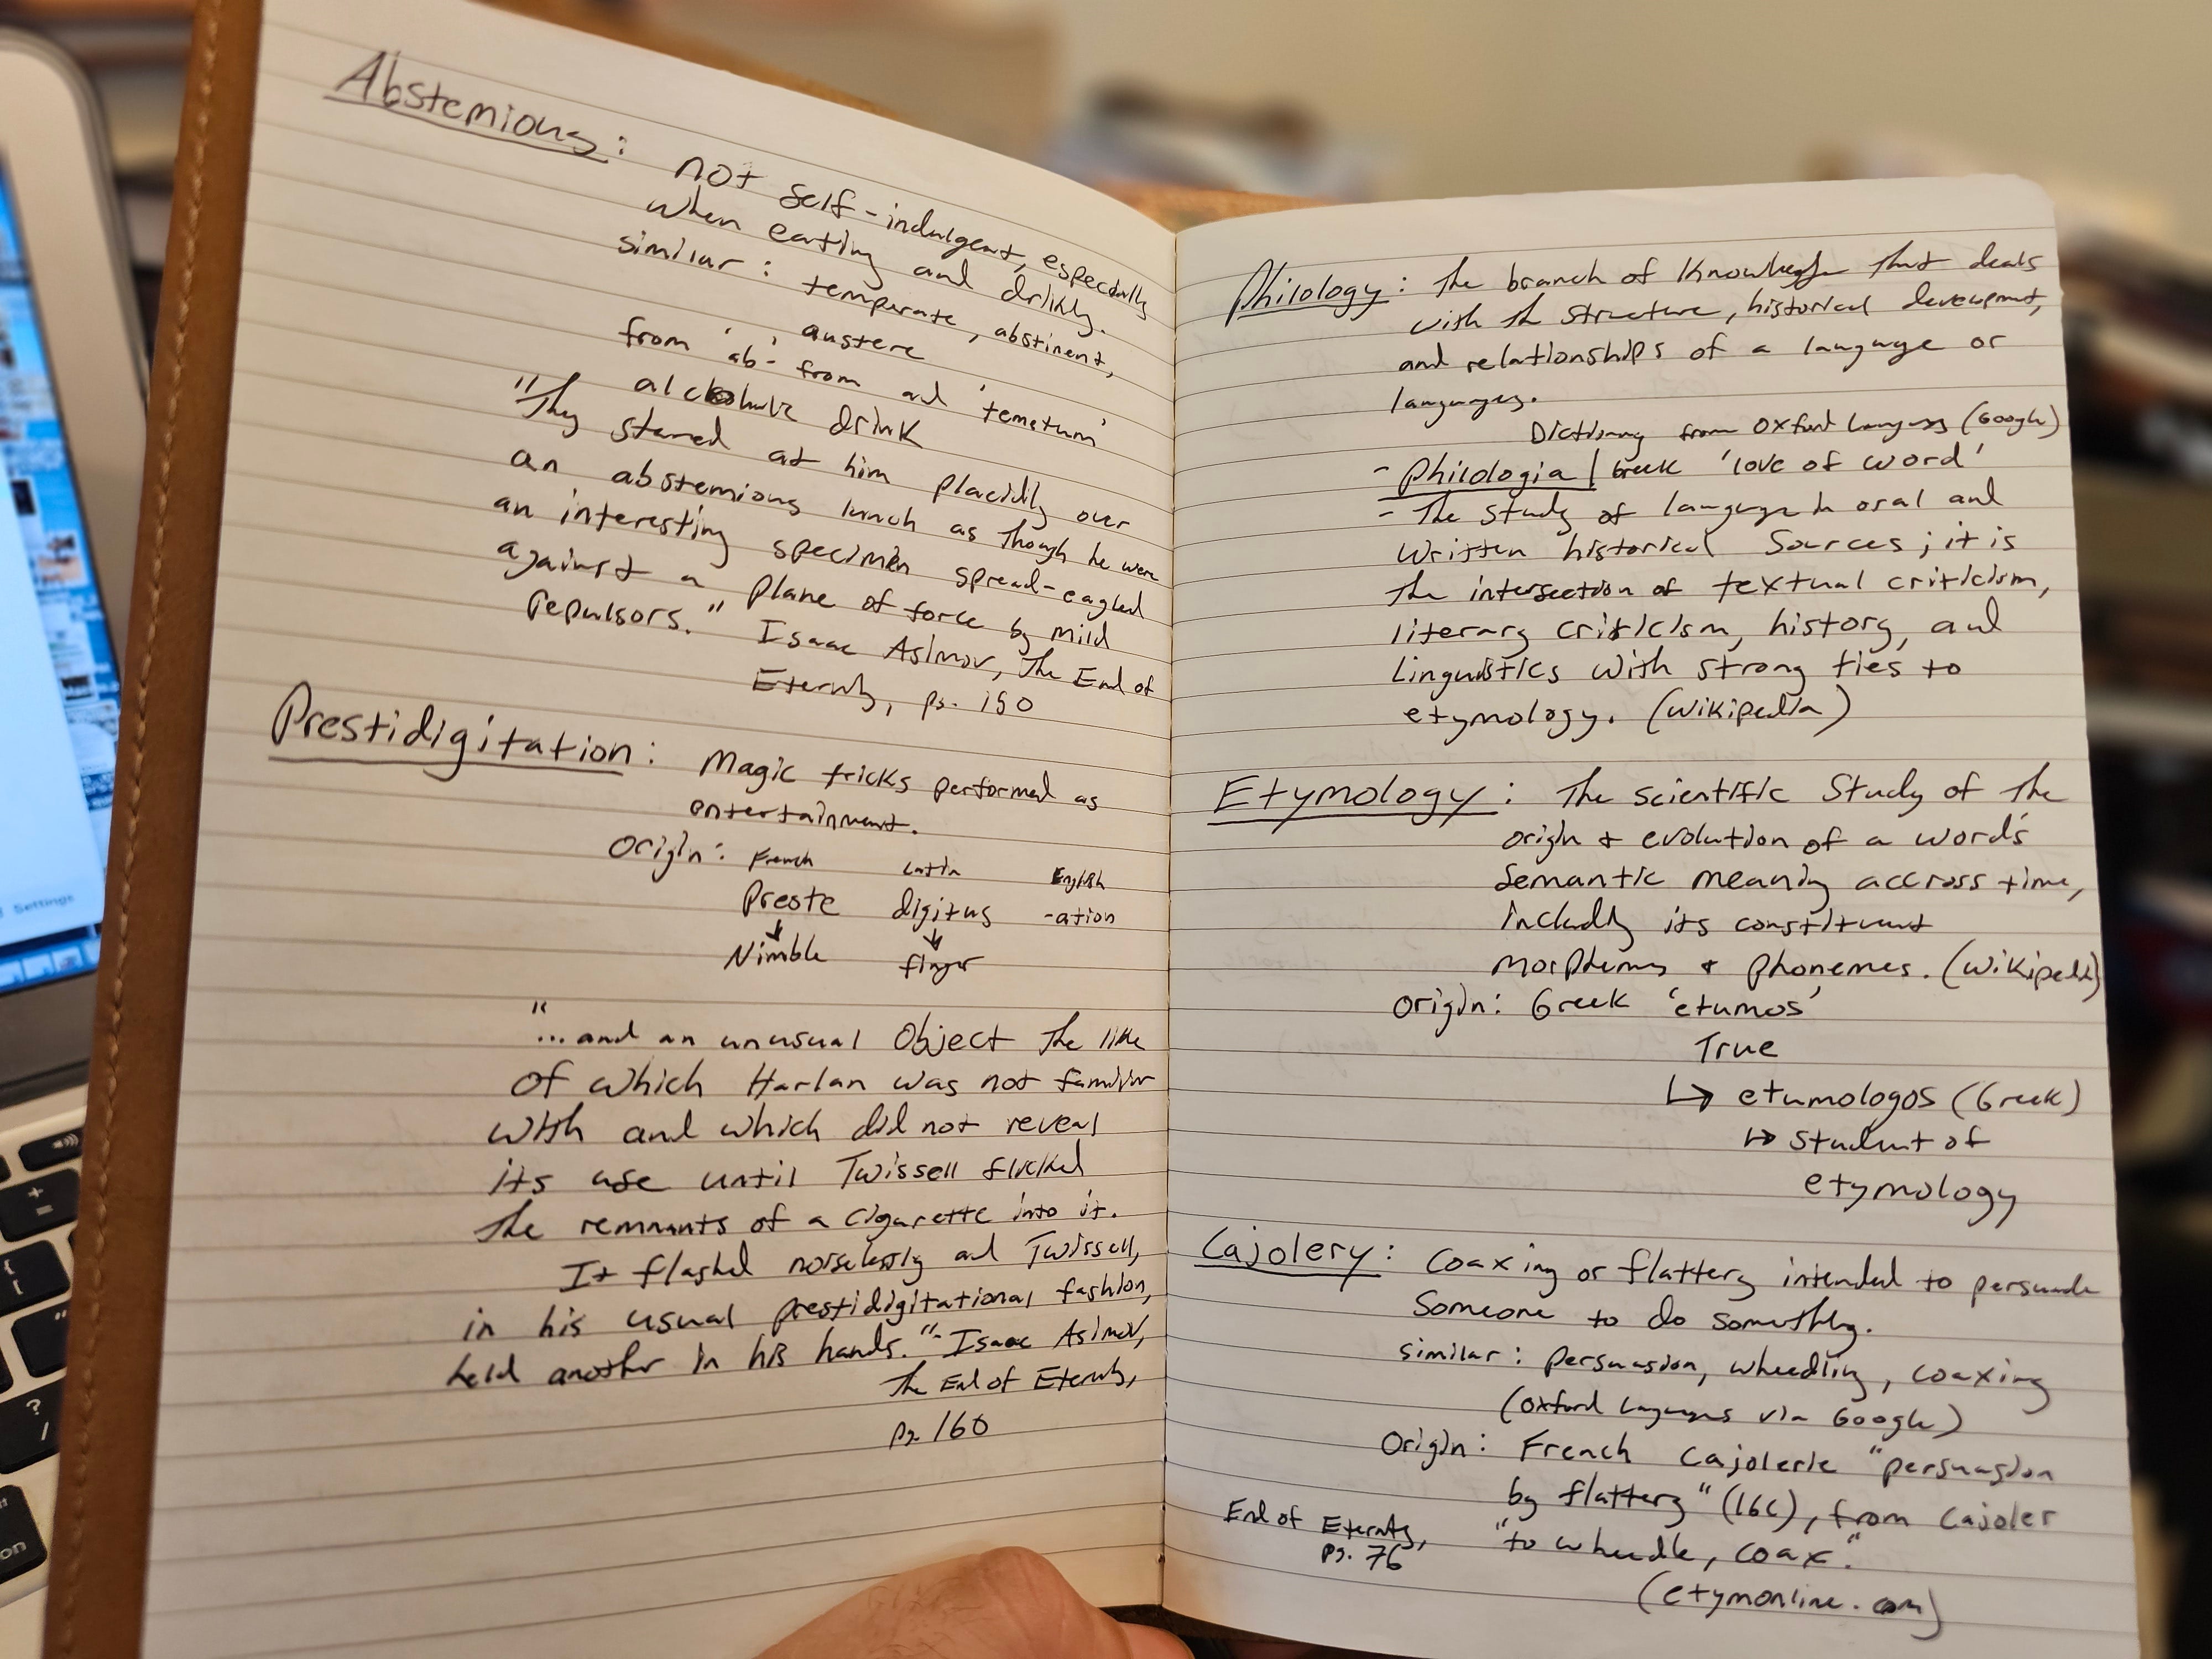 Abstemious:
not self-indulgent, especially
when eating and drinking.
similar: temperate, abstinent,
austere
from 'ab-' from and 'temetum'
alcoholic drink
"They stared at him placidly over
an abstemious lunch as though he were
an interesting specimen spread-eagled
against a plane of force by mild
repulsors." Isaac Asimov, The End of
Eternity, pg. 150
Prestidigitation: Magic tricks performed as
entertainment.
Origin: French Latin English
Preste digitus -ation
Nimble finger
"
...and an unusual object the like
of which Harlan was not familiar
with and which did not reveal
its use until Twissell flicked
the remnants of a cigarette into it.
It flashed noiselessly and Twissell,
in his usual prestidigitational fashion,
held another in his hands."- Isaac Asimov,
The End of Eternity,
pg. 160
Philology: The branch of knowledge that deals
with the structure, historical development,
and relationships of a language or
languages.
Dictionary from Oxford Languages (Google)
- Philologia | Greek 'love of word'
- The study of language in oral and
written historical sources; it is
the intersection of textual criticism,
literary criticism, history, and
linguistics with strong ties to
etymology. (Wikipedia)
Etymology: The scientific study of the
origin + evolution of a word's
semantic meaning accross time,
including its constituent
morphemes + phonemes. (Wikipedia)
Origin: Greek 'etumos'
True
↳ etumologos (Greek)
↳ student of
etymology
Cajolery: Coaxing or flattery intended to persuade
someone to do something.
similar: persuasion, wheedling, coaxing
(Oxford Languages via Google)
Origin: French cajolerie "persuasion
by flattery" (16c), from cajoler
"to wheedle, coax."
(etymonline.com)
End of Eternity,
pg. 76
Settings